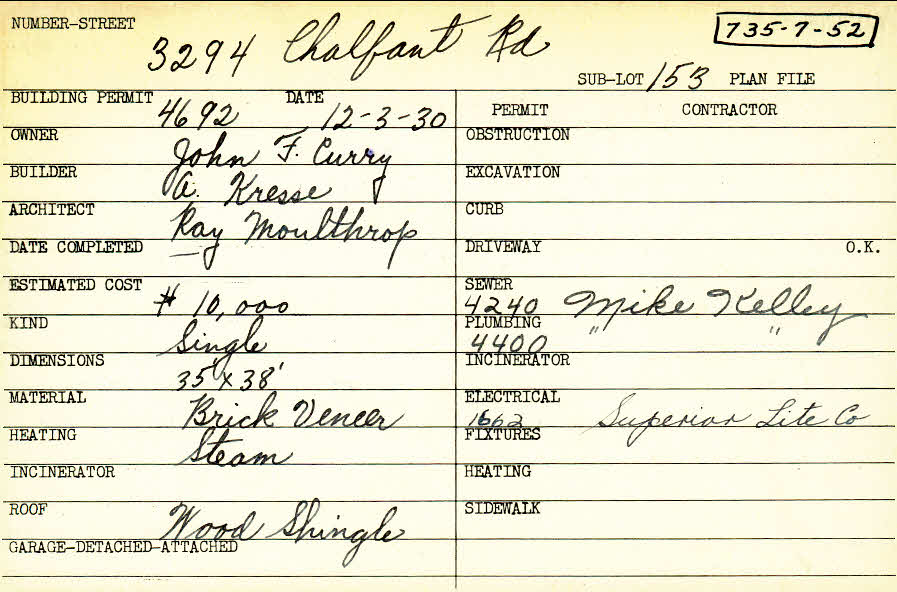 NUMBER-STREET
3294 Chalfant Rd
735-7-52
SUB-LOT 153 PLAN FILE
BUILDING PERMIT 4692 DATE 12-3-30
OWNER John F. Curry
BUILDER A. Kresse
ARCHITECT Ray Moulthrop
DATE COMPLETED —
ESTIMATED COST $ 10,000
KIND Single
DIMENSIONS 35' x 38'
MATERIAL Brick Veneer
HEATING Steam
INCINERATOR
ROOF Wood Shingle
GARAGE-DETACHED-ATTACHED
PERMIT CONTRACTOR
OBSTRUCTION
EXCAVATION
CURB
DRIVEWAY O.K.
SEWER 4240 Mike Kelley
PLUMBING 4400 " "
INCINERATOR
ELECTRICAL 1662 Superior Lite Co
FIXTURES
HEATING
SIDEWALK